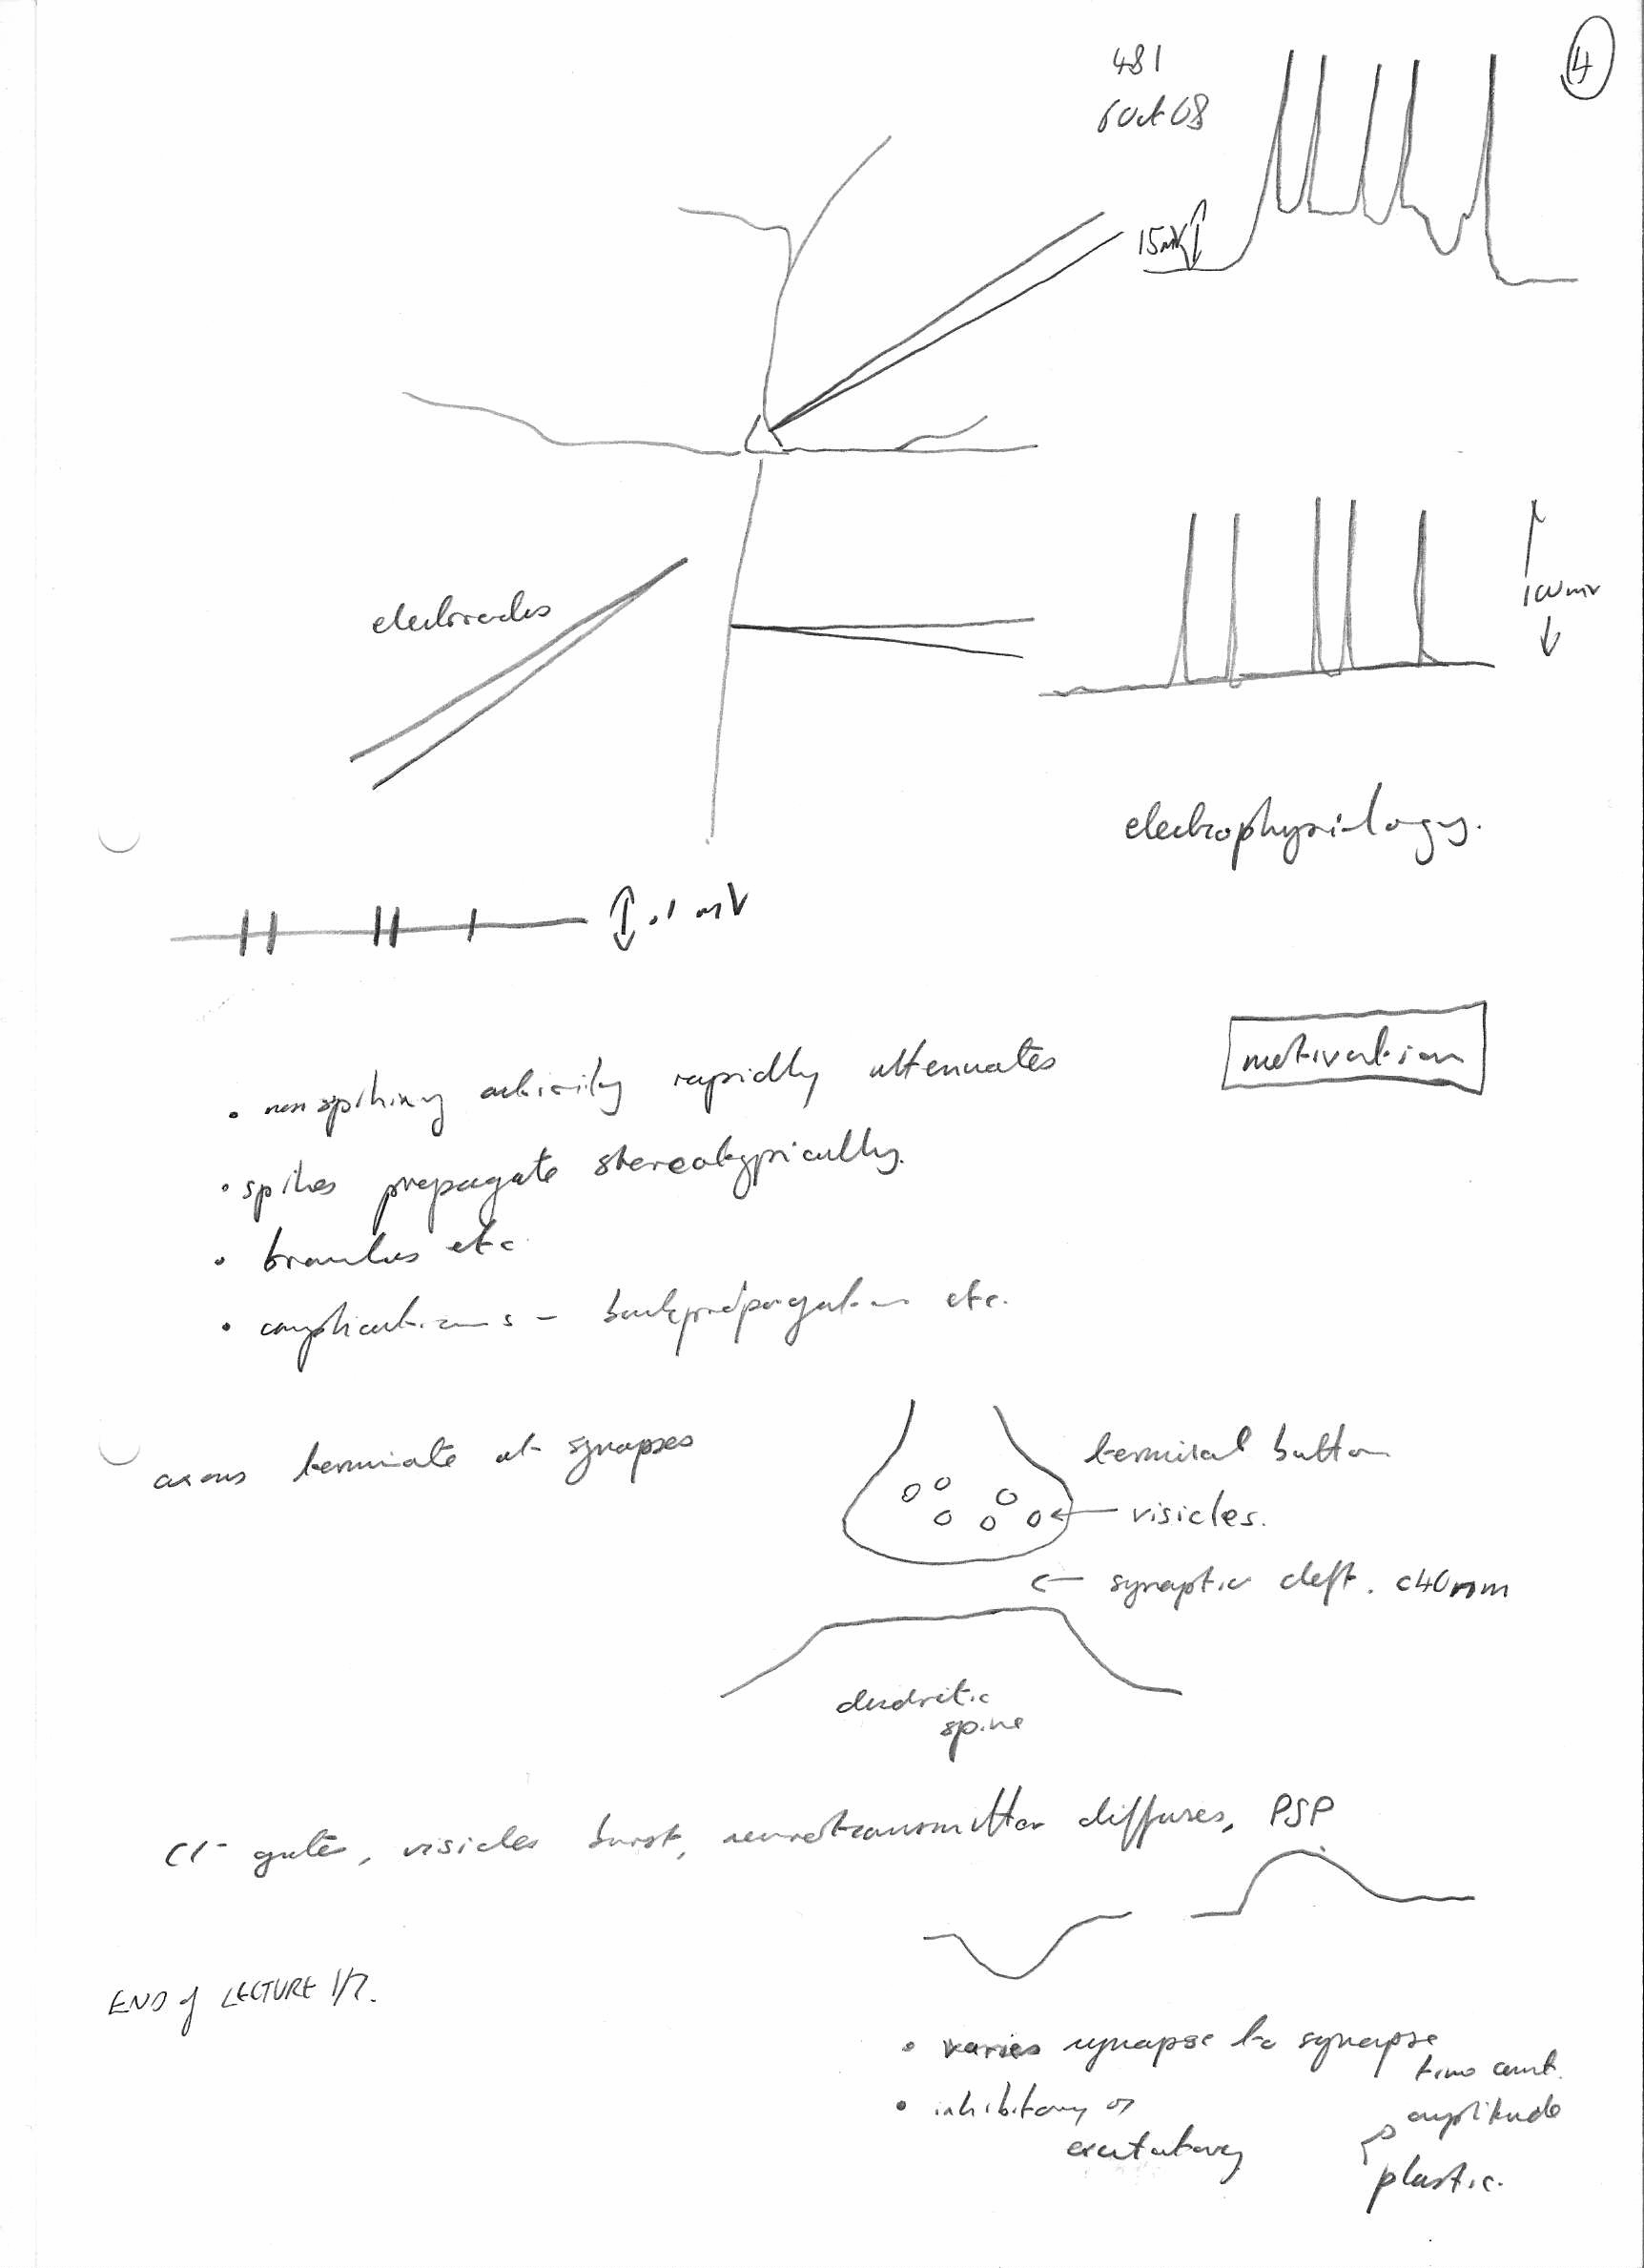 4
481
6 Oct 08
15mV
electrodes
100mv
electrophysiology.
.1 mV
motivation
• non spiking activity rapidly attenuates
• spikes propagate stereotypically.
• branches etc
• complications – backpropagation etc.
axons terminate at synapses
terminal button
visicles.
synaptic cleft. c40nm
dendritic
spine
Cl⁻ gates, visicles burst, neurotransmitter diffuses, PSP
END of LECTURE 1/2.
• varies synapse to synapse
time const.
amplitude
• inhibitory or
excitatory
plastic.